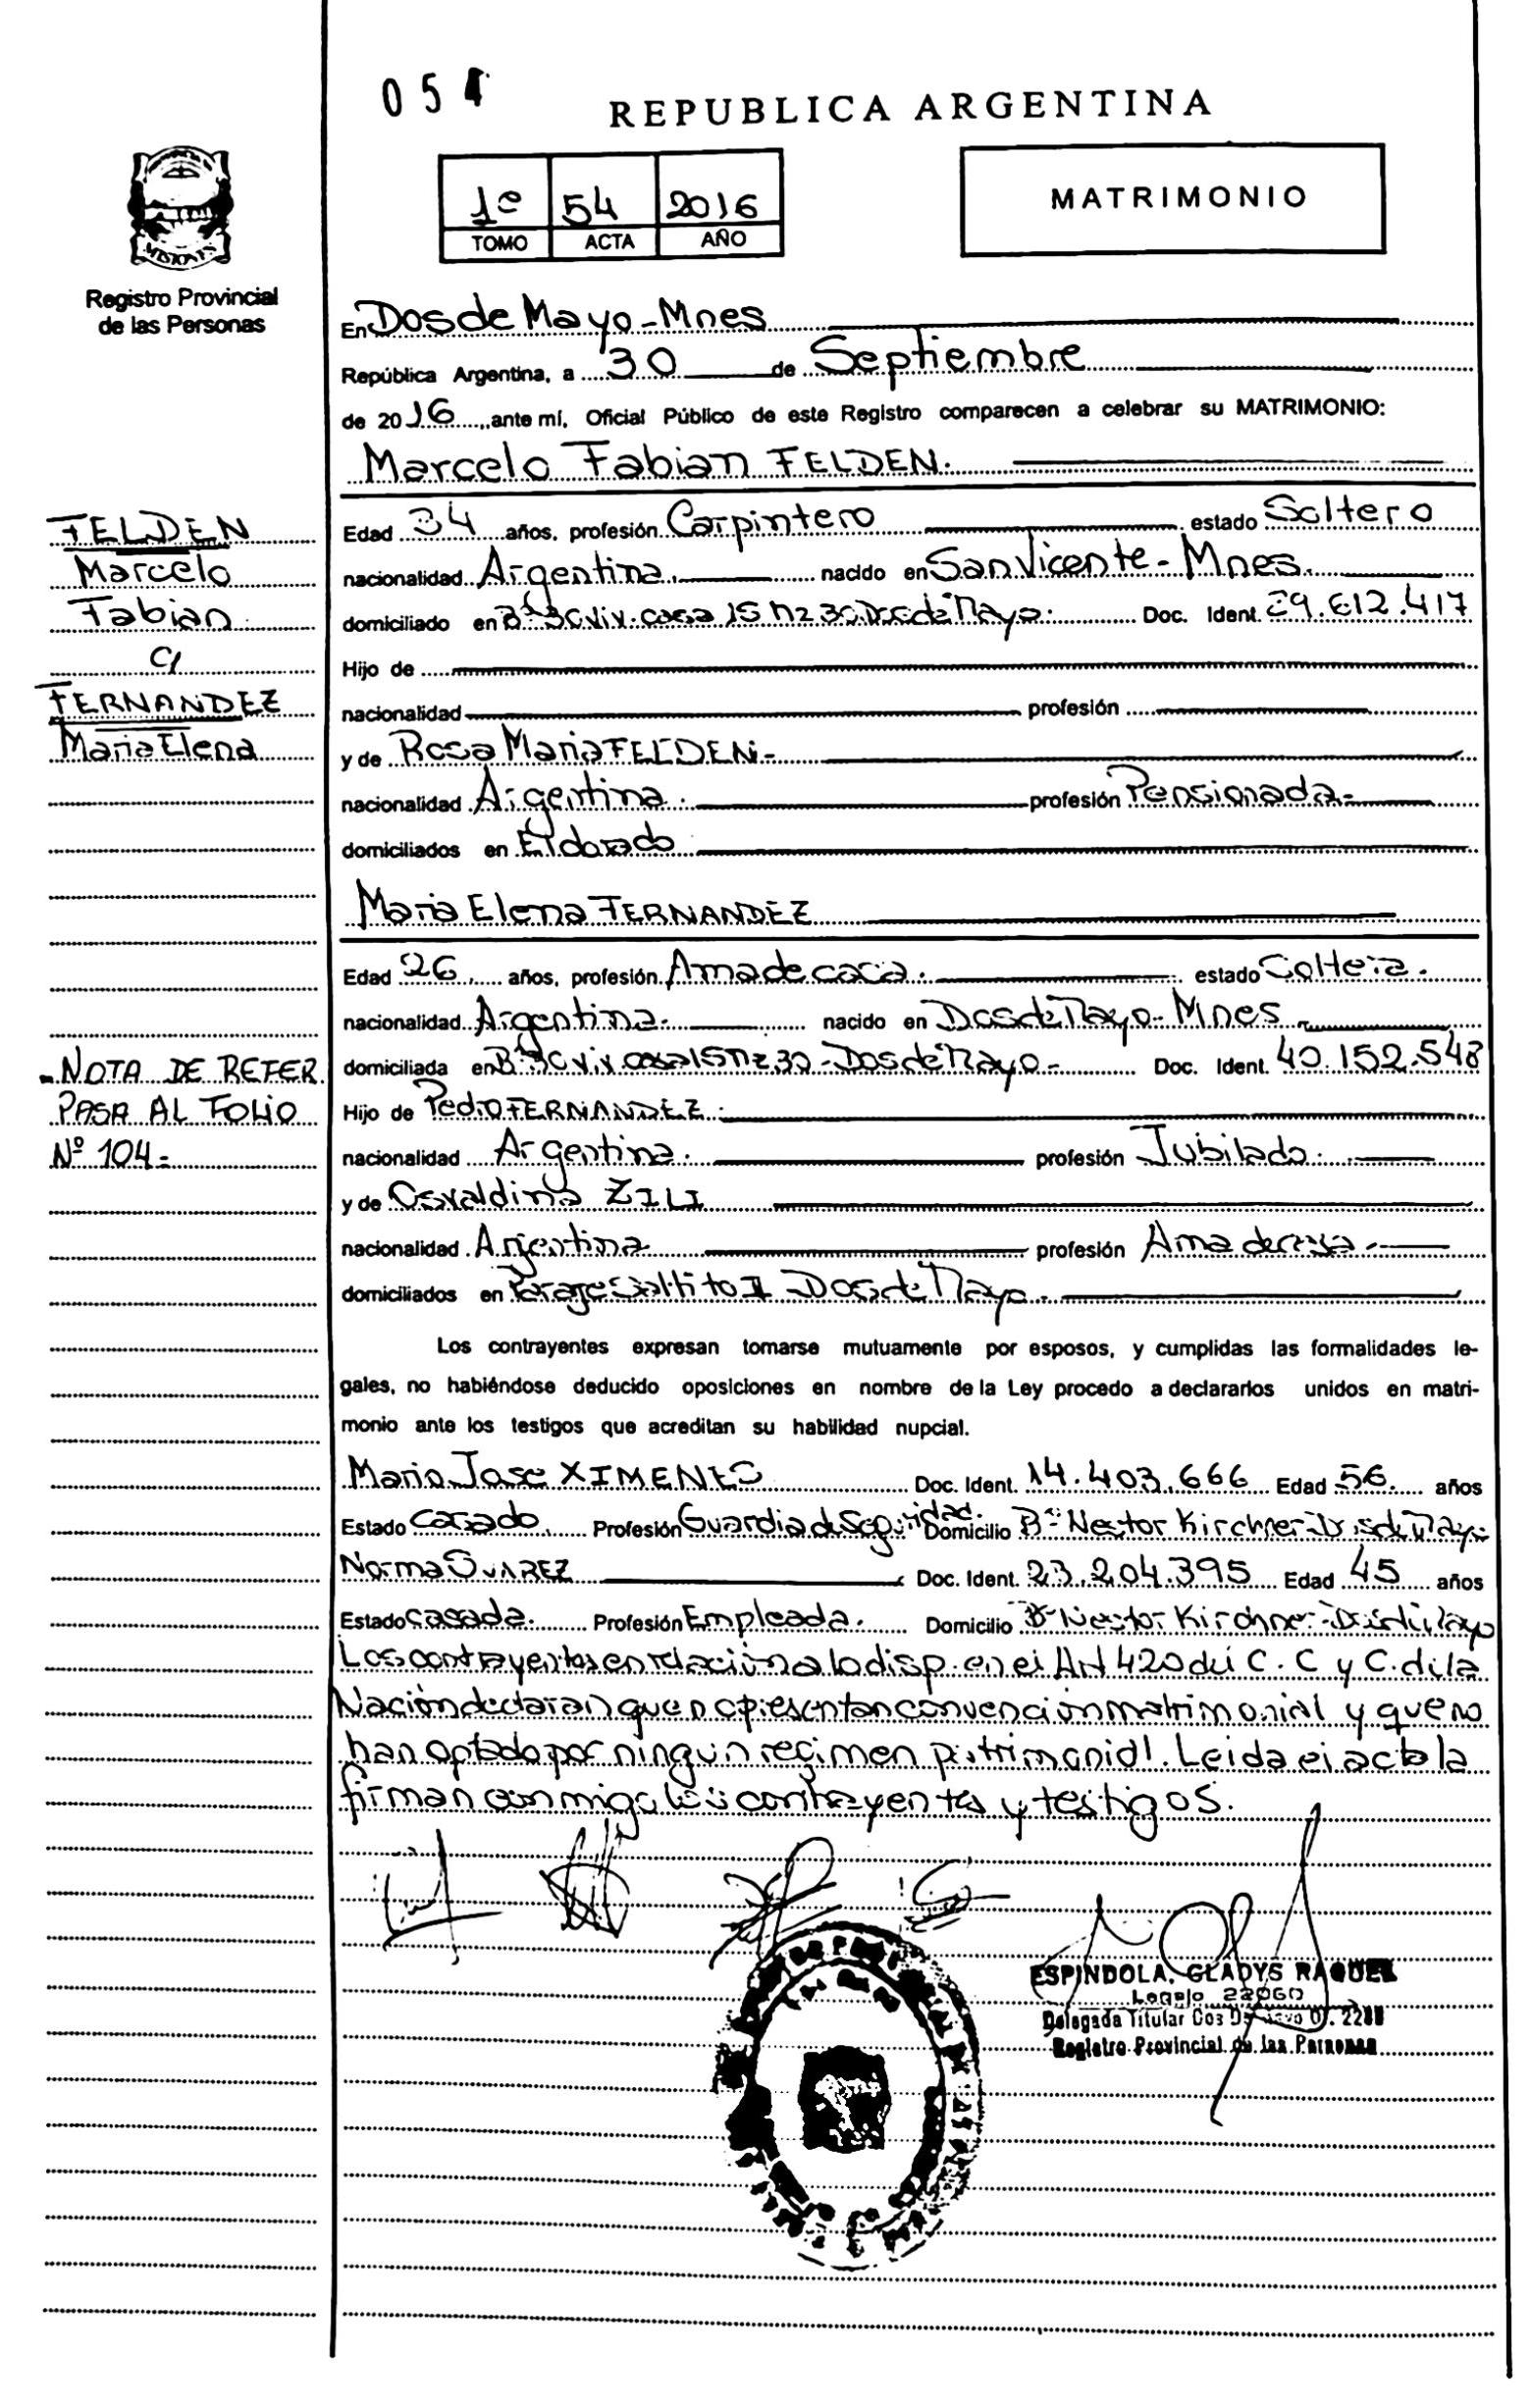 054
REPUBLICA ARGENTINA
1º 54 2016
TOMO ACTA AÑO
MATRIMONIO
MISIONES
Registro Provincial
de las Personas
En Dos de Mayo - Mnes
República Argentina, a 30 de Septiembre
de 2016, ante mí, Oficial Público de este Registro comparecen a celebrar su MATRIMONIO:
Marcelo Fabian FELDEN.
FELDEN
Marcelo
Fabian
c/
FERNANDEZ
Maria Elena
Edad 34 años, profesión Carpintero estado Soltero
nacionalidad Argentina. nacido en San Vicente - Mnes.
domiciliado en Bº viv. casa 15 Mz 30 Dos de Mayo. Doc. Ident. 29.612.417
Hijo de
nacionalidad profesión
y de Rosa Maria FELDEN -
nacionalidad Argentina. profesión Pensionada -
domiciliados en Eldorado
Maria Elena FERNANDEZ
Edad 26. años, profesión Ama de casa. estado Soltera.
nacionalidad Argentina. nacido en Dos de Mayo - Mnes
domiciliada en Bº viv. casa 15 Mz 30 - Dos de Mayo - Doc. Ident. 40.152.548
Hijo de Pedro FERNANDEZ.
nacionalidad Argentina. profesión Jubilado.
y de Osvaldina ZILI
nacionalidad Argentina profesión Ama de casa.
domiciliados en Paraje Saltito II Dos de Mayo.
- NOTA DE REFER
PASA AL FOLIO
Nº 104 -
Los contrayentes expresan tomarse mutuamente por esposos, y cumplidas las formalidades le-
gales, no habiéndose deducido oposiciones en nombre de la Ley procedo a declararlos unidos en matri-
monio ante los testigos que acreditan su habilidad nupcial.
Mario Jose XIMENES Doc. Ident. 14.403.666 Edad 56. años
Estado Casado. Profesión Guardia de Seguridad. Domicilio Bº Nestor Kirchner - Dos de Mayo
Norma SUAREZ Doc. Ident. 23.204.395 Edad 45 años
Estado Casada. Profesión Empleada. Domicilio Bº Nestor Kirchner - Dos de Mayo
Los contrayentes en relación a lo disp. en el Art 420 del C. C y C. de la
Nación declaran que no presentan convención matrimonial y que no
han optado por ningún regimen patrimonial. Leida el acta la
firman conmigo los contrayentes y testigos.
ESPINDOLA, GLADYS RAQUEL
Legajo
Delegada Titular Dos De Mayo Of.
Registro Provincial de las Personas